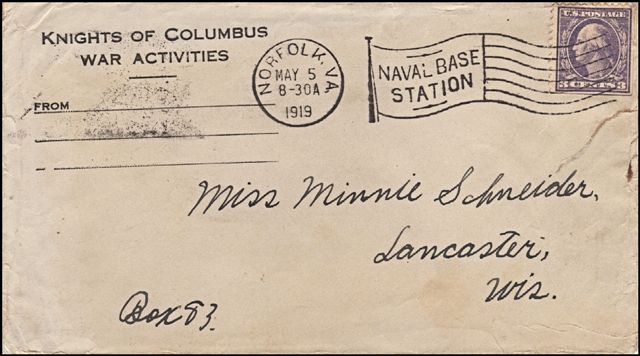 KNIGHTS OF COLUMBUS
WAR ACTIVITIES
FROM
NORFOLK, VA
MAY 5
8-30A
1919
NAVAL BASE
STATION
U.S. POSTAGE
3 CENTS 3
Miss Minnie Schneider,
Lancaster,
Wis.
Box 83.